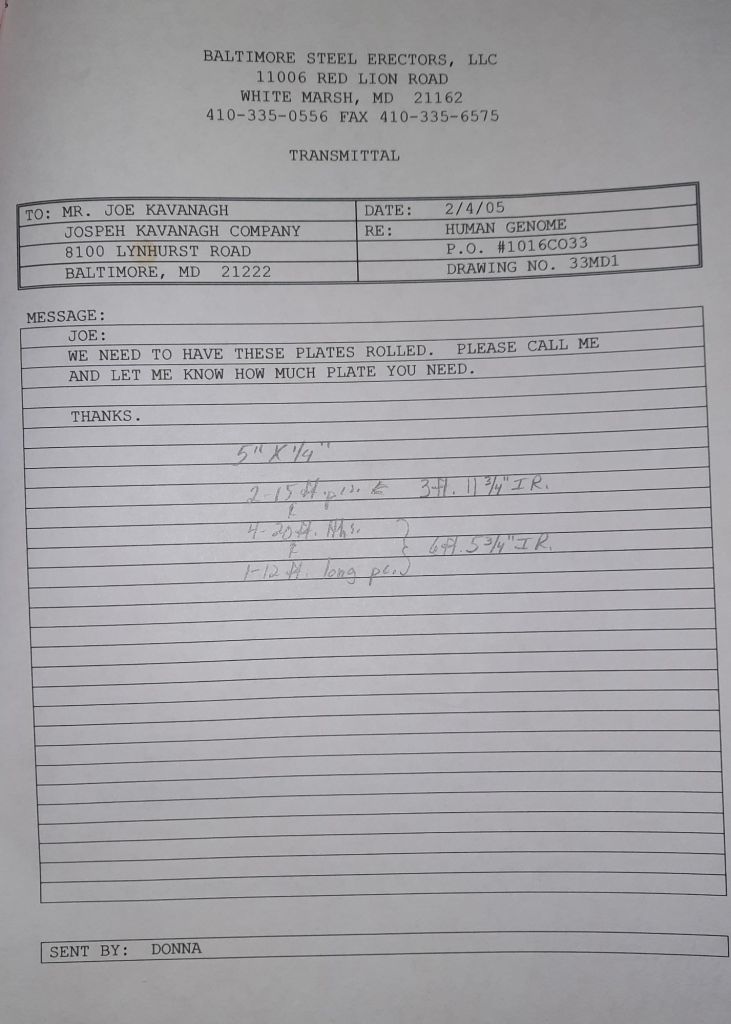 BALTIMORE STEEL ERECTORS, LLC
11006 RED LION ROAD
WHITE MARSH, MD 21162
410-335-0556 FAX 410-335-6575
TRANSMITTAL
TO: MR. JOE KAVANAGH DATE: 2/4/05
JOSPEH KAVANAGH COMPANY RE: HUMAN GENOME
8100 LYNHURST ROAD P.O. #1016CO33
BALTIMORE, MD 21222 DRAWING NO. 33MD1
MESSAGE:
JOE:
WE NEED TO HAVE THESE PLATES ROLLED. PLEASE CALL ME
AND LET ME KNOW HOW MUCH PLATE YOU NEED.
THANKS.
5" X 1/4"
2-15 ft. 3 ft. 11 3/4" I R.
4-20 ft. lths.
6 ft. 5 3/4" I R.
1-12 ft. long pc.
SENT BY: DONNA